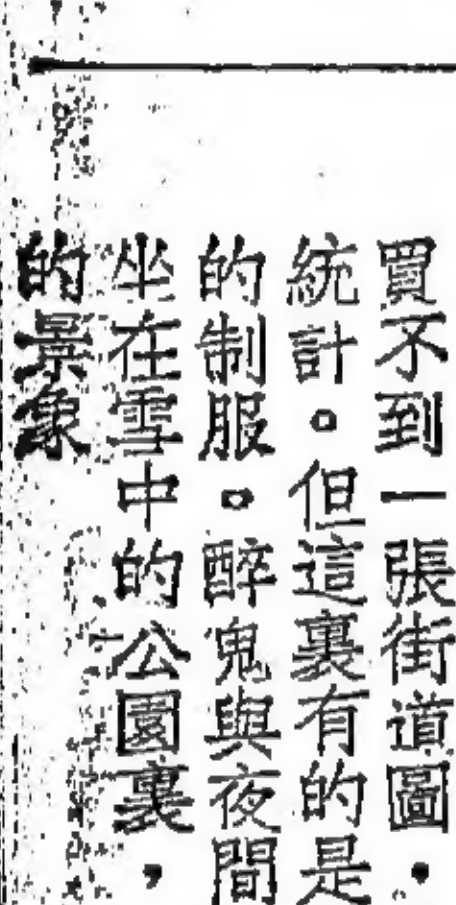 買不到一張街道圖．
統計。但這裏有的是
的制服。醉鬼與夜間
坐在雪中的公園裏，
的景象